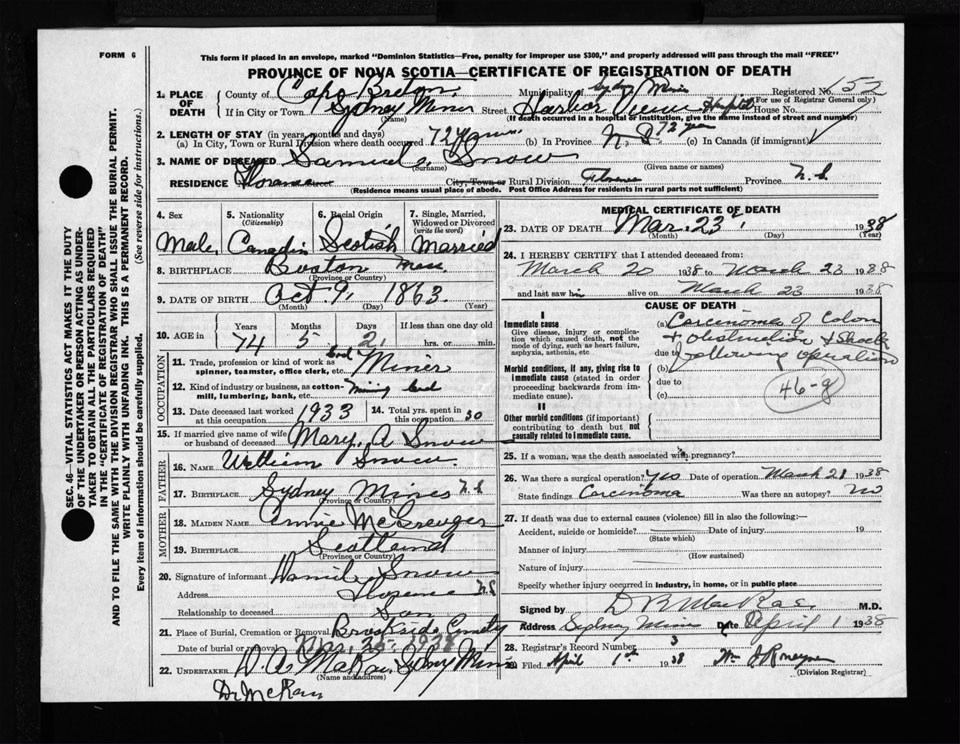 FORM 6
This form if placed in an envelope, marked "Dominion Statistics—Free, penalty for improper use $300," and properly addressed will pass through the mail "FREE"
PROVINCE OF NOVA SCOTIA—CERTIFICATE OF REGISTRATION OF DEATH
SEC. 46—VITAL STATISTICS ACT MAKES IT THE DUTY
OF THE UNDERTAKER OR PERSON ACTING AS UNDER-
TAKER TO OBTAIN ALL THE PARTICULARS REQUIRED
IN THE "CERTIFICATE OF REGISTRATION OF DEATH"
AND TO FILE THE SAME WITH THE DIVISION REGISTRAR WHO SHALL ISSUE THE BURIAL PERMIT.
WRITE PLAINLY WITH UNFADING INK. THIS IS A PERMANENT RECORD.
Every item of information should be carefully supplied. (See reverse side for instructions.)
1. PLACE OF DEATH County of Cape Breton Municipality Sydney Mines Registered No. 152
(For use of Registrar General only)
If in City or Town Sydney Mines Street Harbor View Hospital House No.
(Name) (If death occurred in a hospital or institution, give the name instead of street and number)
2. LENGTH OF STAY (in years, months and days)
(a) In City, Town or Rural Division where death occurred 72 years (b) In Province N.S. 72 yrs (c) In Canada (if immigrant)
3. NAME OF DECEASED Samuel Snow
(Surname) (Given name or names)
RESIDENCE Florence City, Town or Rural Division Florence Province N.S
(Residence means usual place of abode. Post Office Address for residents in rural parts not sufficient)
4. Sex 5. Nationality (Citizenship) 6. Racial Origin 7. Single, Married, Widowed or Divorced (write the word)
Male Canadin Scotish Married
8. BIRTHPLACE Boston Mass
(Province or Country)
9. DATE OF BIRTH Oct. 9, 1863
(Month) (Day) (Year)
10. AGE in Years Months Days If less than one day old
74 5 2 hrs. or min.
OCCUPATION
11. Trade, profession or kind of work as spinner, teamster, office clerk, etc. Coal Miner
12. Kind of industry or business, as cotton-mill, lumbering, bank, etc. Mining Coal
13. Date deceased last worked at this occupation 1933 14. Total yrs. spent in this occupation 50
15. If married give name of wife or husband of deceased Mary A Snow
FATHER
16. NAME William Snow
17. BIRTHPLACE Sydney Mines N.S
(Province or Country)
MOTHER
18. MAIDEN NAME Annie
19. BIRTHPLACE Scotland
(Province or Country)
20. Signature of informant Snow
Address Florence N.S
Relationship to deceased Son
21. Place of Burial, Cremation or Removal Brookside Cemetery
Date of burial or removal Mar, 1938
22. UNDERTAKER Sydney Mines
(Name and address)
Dr McRae
MEDICAL CERTIFICATE OF DEATH
23. DATE OF DEATH Mar. 23 1938
(Month) (Day) (Year)
24. I HEREBY CERTIFY that I attended deceased from:
March 20 1938 to March 23 1938
and last saw him alive on March 23 1938
CAUSE OF DEATH
I
Immediate cause
Give disease, injury or complication which caused death, not the mode of dying, such as heart failure, asphyxia, asthenia, etc
(a) Carcinoma of Colon
+ obstruction + Shock
due to following operation
Morbid conditions, if any, giving rise to immediate cause (stated in order proceeding backwards from immediate cause).
(b)
due to
(c)
46-g
II
Other morbid conditions (if important) contributing to death but not causally related to immediate cause.
25. If a woman, was the death associated with pregnancy?
26. Was there a surgical operation? Yes Date of operation March 21 1938
State findings Carcinoma Was there an autopsy? No
27. If death was due to external causes (violence) fill in also the following:—
Accident, suicide or homicide? Date of injury 19
(State which)
Manner of injury
(How sustained)
Nature of injury
Specify whether injury occurred in industry, in home, or in public place
Signed by M.D.
Address Sydney Mines Date April 1 1938
28. Registrar's Record Number 3
29. Filed April 1st 1938
(Division Registrar)